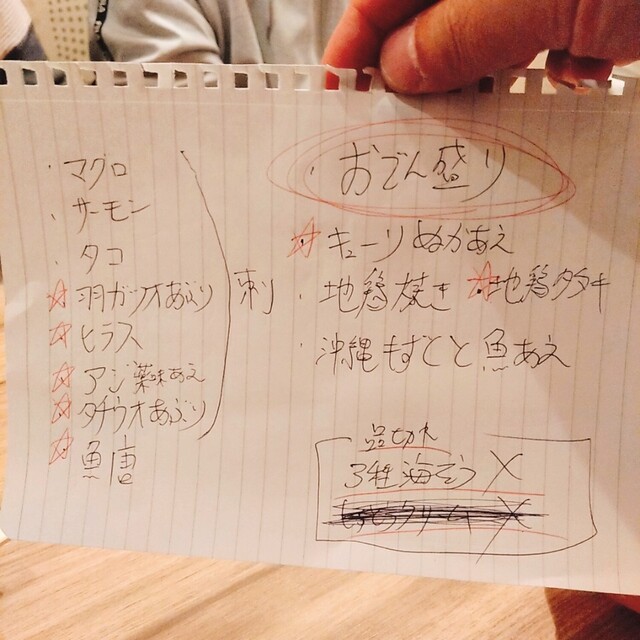 ・マグロ
・サーモン
・タコ
☆羽ガツオあぶり
☆ヒラス
☆アジ薬味あえ
☆タチウオあぶり
刺
☆魚唐
・おでん盛り
☆キューリぬかあえ
・地鶏焼き ☆地鶏タタキ
・沖縄もずくと魚あえ
品切れ
3種海そう X